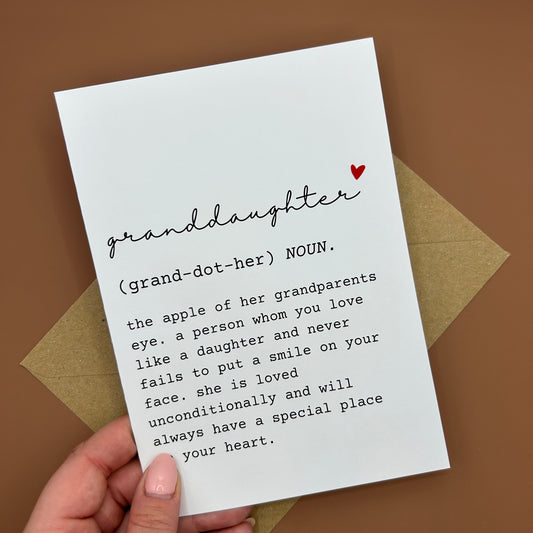 granddaughter
(grand-dot-her) NOUN.
the apple of her grandparents
eye. a person whom you love
like a daughter and never
fails to put a smile on your
face. she is loved
unconditionally and will
always have a special place
your heart.